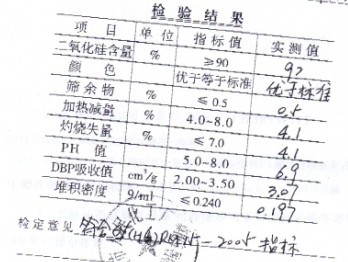 检验结果
项 目 单位 指标值 实测值
二氧化硅含量 % ≥90 92
颜 色 优于等于标准 优于标准
筛余物 % ≤ 0.5 0.5
加热减量 % 4.0~8.0 4.1
灼烧失量 % ≤ 7.0 4.1
PH 值 5.0~8.0 6.9
DBP吸收值 cm³/g 2.00~3.50 3.07
堆积密度 g/ml ≤ 0.240 0.197
检定意见 符合 2005 指标
化工